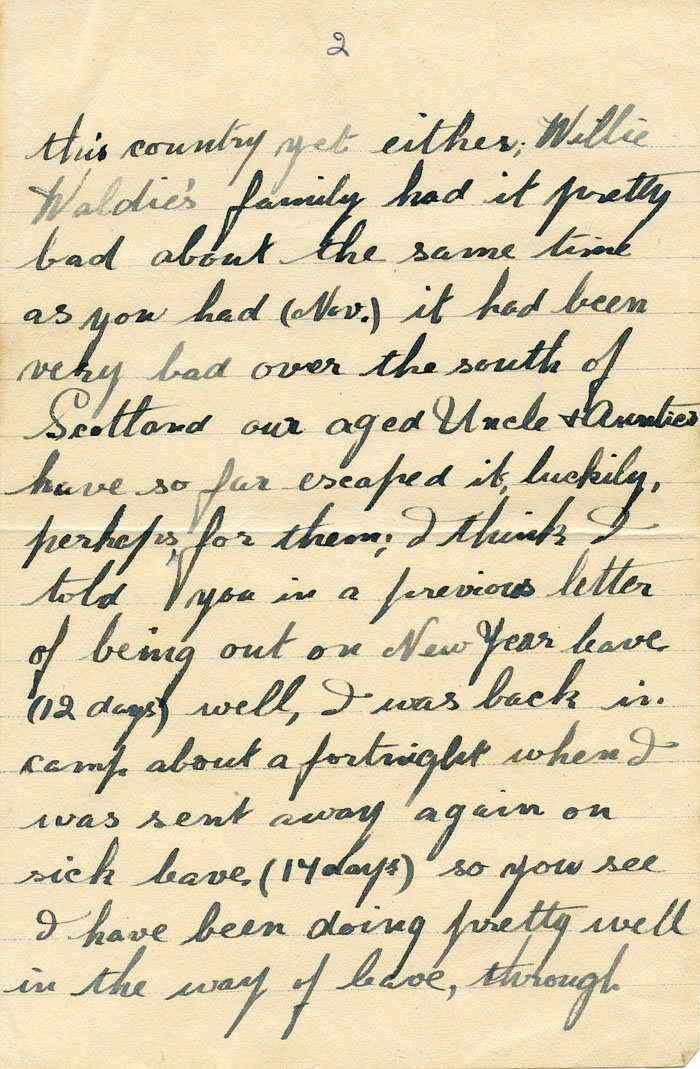 2
this country yet either; Willie
Waldie's family had it pretty
bad about the same time
as you had (Nov.) it had been
very bad over the south of
Scotland our aged Uncle & Aunties
have so far escaped it, luckily,
perhaps for them; I think I
told you in a previous letter
of being out on New Year leave
(12 days) well, I was back in
camp about a fortnight when I
was sent away again on
sick leave, (14 days) so you see
I have been doing pretty well
in the way of leave, through